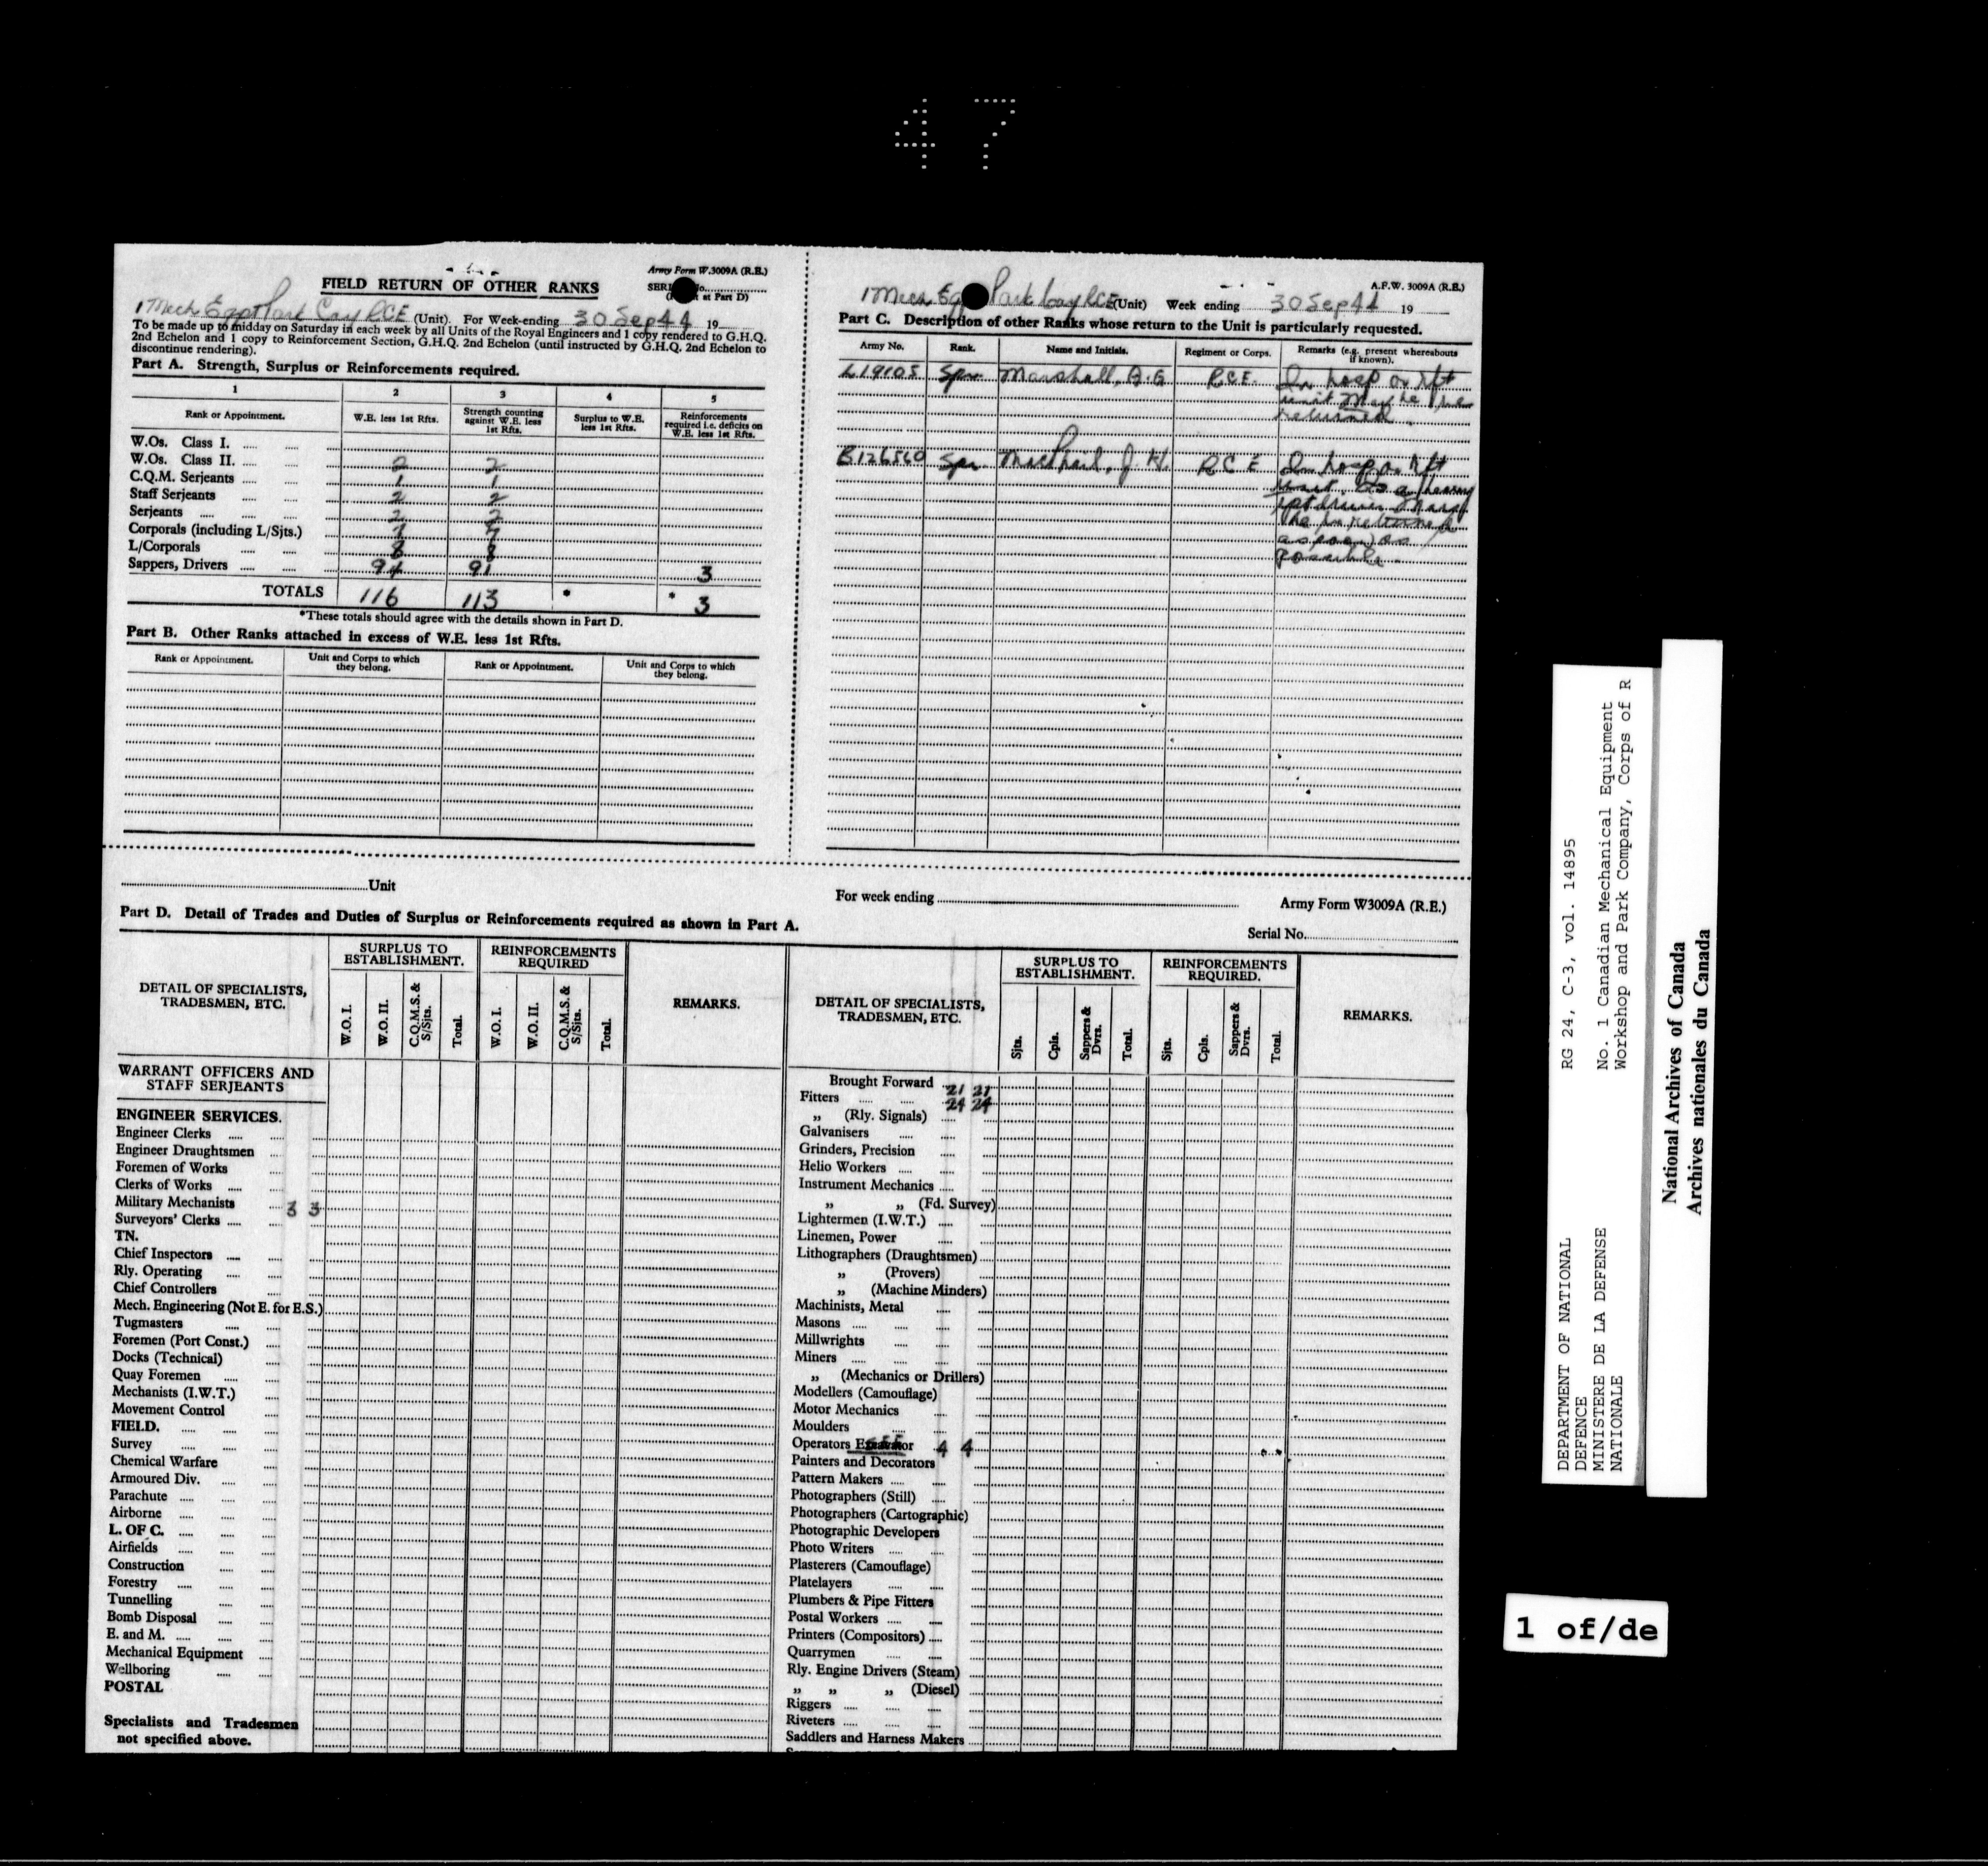 47
Army Form W.3009A (R.E.)
FIELD RETURN OF OTHER RANKS
1 Mech Eqpt Park Coy RCE (Unit). For Week-ending 30 Sep 44 19
To be made up to midday on Saturday in each week by all Units of the Royal Engineers and 1 copy rendered to G.H.Q.
2nd Echelon and 1 copy to Reinforcement Section, G.H.Q. 2nd Echelon (until instructed by G.H.Q. 2nd Echelon to
discontinue rendering).
Part A. Strength, Surplus or Reinforcements required.
1 2 3 4 5
Rank or Appointment. W.E. less 1st Rfts. Strength counting against W.E. less 1st Rfts. Surplus to W.E. less 1st Rfts. Reinforcements required i.e. deficits on W.E. less 1st Rfts.
W.Os. Class I.
W.Os. Class II. 2 2
C.Q.M. Serjeants 1 1
Staff Serjeants 2 2
Serjeants 2 2
Corporals (including L/Sjts.) 7 7
L/Corporals 8 8
Sappers, Drivers 94 91 3
TOTALS 116 113 * * 3
*These totals should agree with the details shown in Part D.
Part B. Other Ranks attached in excess of W.E. less 1st Rfts.
Rank or Appointment. Unit and Corps to which they belong. Rank or Appointment. Unit and Corps to which they belong.
A.F.W. 3009A (R.E.)
1 Mech Eqpt Park Coy RCE (Unit) Week ending 30 Sep 44 19
Part C. Description of other Ranks whose return to the Unit is particularly requested.
Army No. Rank. Name and Initials. Regiment or Corps. Remarks (e.g. present whereabouts if known).
L19105 Spr. Marshall, A.G RCE. In hosp or rft
unit May he be
returned.
B126560 Spr. MacPhail, J. H. RCE In hosp or rft
unit. As a heavy
may
he be returned
as soon as
possible.
Unit
For week ending
Army Form W3009A (R.E.)
Part D. Detail of Trades and Duties of Surplus or Reinforcements required as shown in Part A.
Serial No.
DETAIL OF SPECIALISTS, TRADESMEN, ETC. SURPLUS TO ESTABLISHMENT. REINFORCEMENTS REQUIRED REMARKS.
W.O. I. W.O. II. C.Q.M.S. & S/Sjts. Total. W.O. I. W.O. II. C.Q.M.S. & S/Sjts. Total.
WARRANT OFFICERS AND
STAFF SERJEANTS
ENGINEER SERVICES.
Engineer Clerks
Engineer Draughtsmen
Foremen of Works
Clerks of Works
Military Mechanists 3 3
Surveyors' Clerks
TN.
Chief Inspectors
Rly. Operating
Chief Controllers
Mech. Engineering (Not E. for E.S.)
Tugmasters
Foremen (Port Const.)
Docks (Technical)
Quay Foremen
Mechanists (I.W.T.)
Movement Control
FIELD.
Survey
Chemical Warfare
Armoured Div.
Parachute
Airborne
L. OF C.
Airfields
Construction
Forestry
Tunnelling
Bomb Disposal
E. and M.
Mechanical Equipment
Wellboring
POSTAL
Specialists and Tradesmen
not specified above.
DETAIL OF SPECIALISTS, TRADESMEN, ETC. SURPLUS TO ESTABLISHMENT. REINFORCEMENTS REQUIRED. REMARKS.
Sjts. Cpls. Sappers & Dvrs. Total. Sjts. Cpls. Sappers & Dvrs. Total.
Brought Forward 21 21
Fitters 24 24
„ (Rly. Signals)
Galvanisers
Grinders, Precision
Helio Workers
Instrument Mechanics
„ „ (Fd. Survey)
Lightermen (I.W.T.)
Linemen, Power
Lithographers (Draughtsmen)
„ (Provers)
„ (Machine Minders)
Machinists, Metal
Masons
Millwrights
Miners
„ (Mechanics or Drillers)
Modellers (Camouflage)
Motor Mechanics
Moulders
Operators Excavator 4 4
Painters and Decorators
Pattern Makers
Photographers (Still)
Photographers (Cartographic)
Photographic Developers
Photo Writers
Plasterers (Camouflage)
Platelayers
Plumbers & Pipe Fitters
Postal Workers
Printers (Compositors)
Quarrymen
Rly. Engine Drivers (Steam)
„ „ „ (Diesel)
Riggers
Riveters
Saddlers and Harness Makers
DEPARTMENT OF NATIONAL
DEFENCE
MINISTERE DE LA DEFENSE
NATIONALE
RG 24, C-3, vol. 14895
No. 1 Canadian Mechanical Equipment
Workshop and Park Company, Corps of R
National Archives of Canada
Archives nationales du Canada
1 of/de